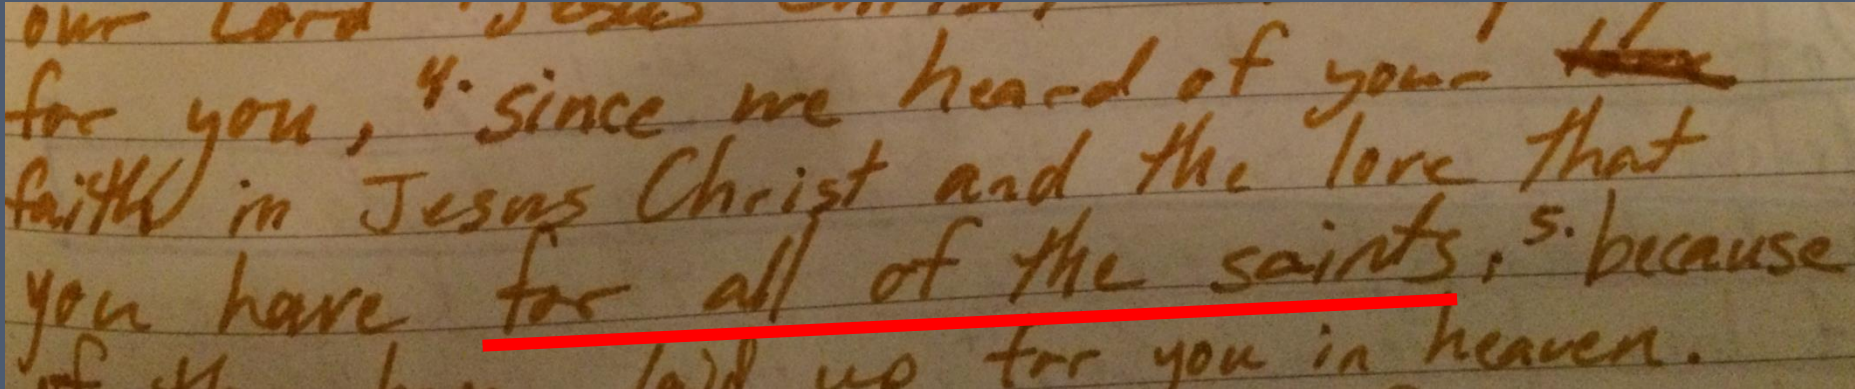 our Lord Jesus Christ
for you, 4. since we heard of your
faith in Jesus Christ and the love that
you have for all of the saints, 5. because
of the laid up for you in heaven.